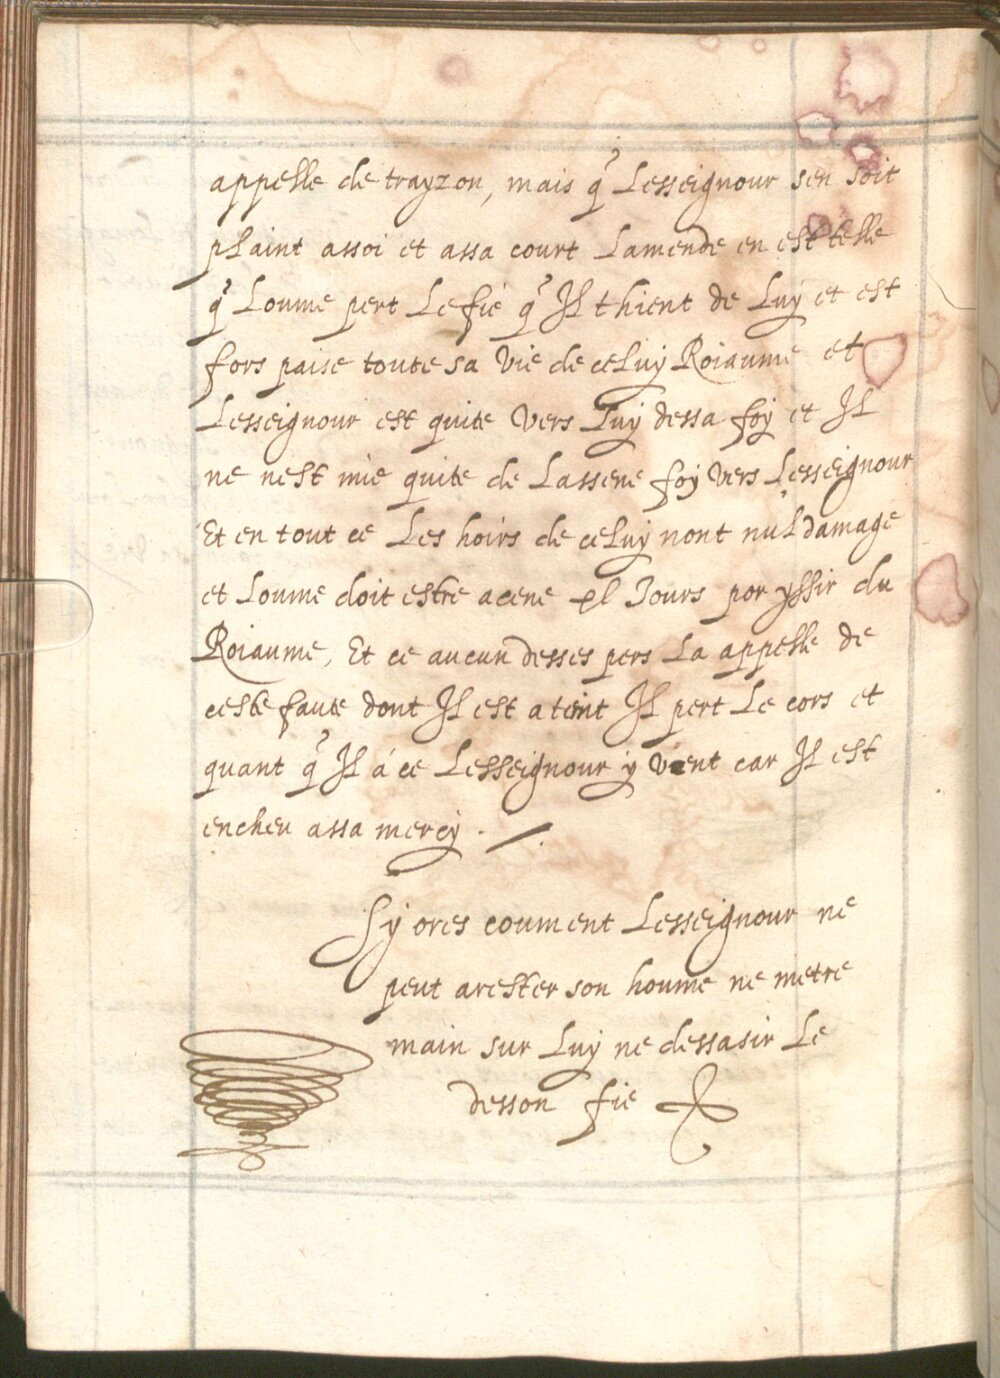 appelle de trayzon, mais q̃ Lesseignour sen soit
plaint assoi et assa court Lamende en est telle
q̃ Loume pert Le fié q̃ Il thient de Luy et est
fors paise toute sa Vie de celuy Roiaume et
Lesseignour est quite Vers Luy dessa foy et Il
ne nest mie quite de Lassene foy Vers Lesseignour
Et en tout ce Les hoirs de celuy nont nul damage
et Loume doit estre acene xl Jours por yssir du
Roiaume, Et ce aucun desses pers La appelle de
ceste faute dont Il est atint Il pert Le cors et
quant q̃ Il á ce Lesseignour y Vient car Il est
encheu assa mercy.
Sy ores coument Lesseignour ne
peut arester son houme ne metre
main sur Luy ne dessasir Le
desson fie